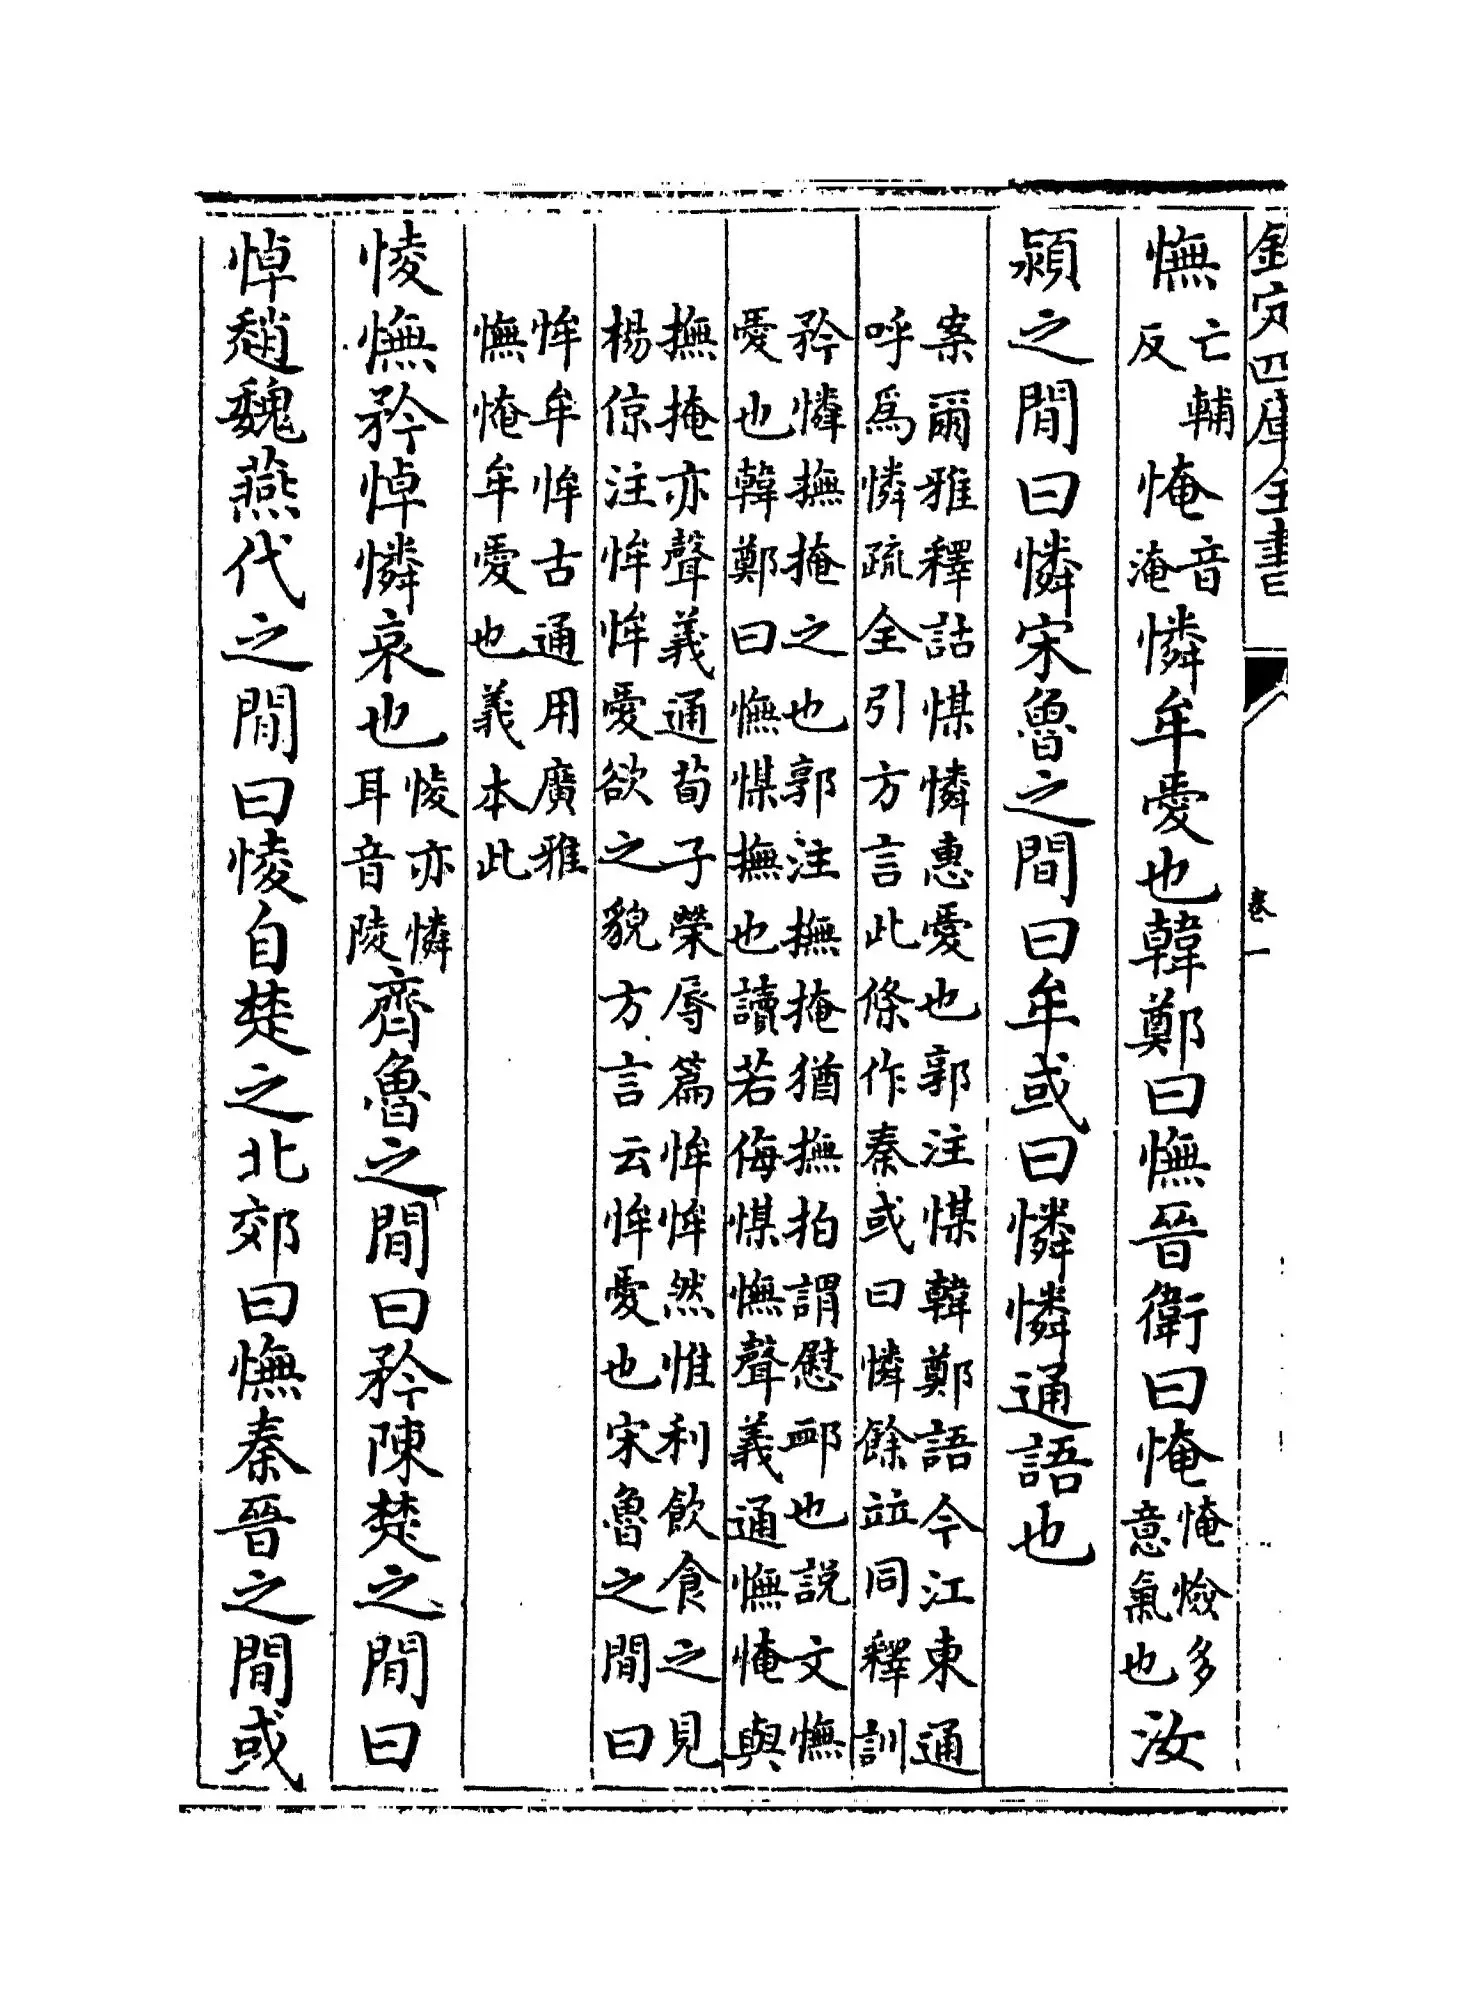 欽定四庫全書
卷一
憮亡輔反㤿音淹憐牟愛也韓鄭曰憮晉衛曰㤿㤿憸多意氣也汝
潁之間曰憐宋魯之間曰牟或曰憐憐通語也
案爾雅釋詁⿰忄某憐惠愛也郭注⿰忄某韓鄭語今江東通
呼爲憐疏全引方言此條作秦或曰憐餘竝同釋訓
矜憐撫掩之也郭注撫掩猶撫拍謂慰䘏也說文憮
愛也韓鄭曰憮⿰忄某撫也讀若侮⿰忄某憮聲義通憮㤿與
撫掩亦聲義通荀子榮辱篇恈恈然惟利飲食之見
楊倞注恈恈愛欲之貌方言云恈愛也宋魯之間曰
恈牟恈古通用廣雅
憮㤿牟愛也義本此
㥄憮矜悼憐哀也㥄亦憐耳音陵齊魯之間曰矜陳楚之間曰
悼趙魏燕代之間曰㥄自楚之北郊曰憮秦晉之間或